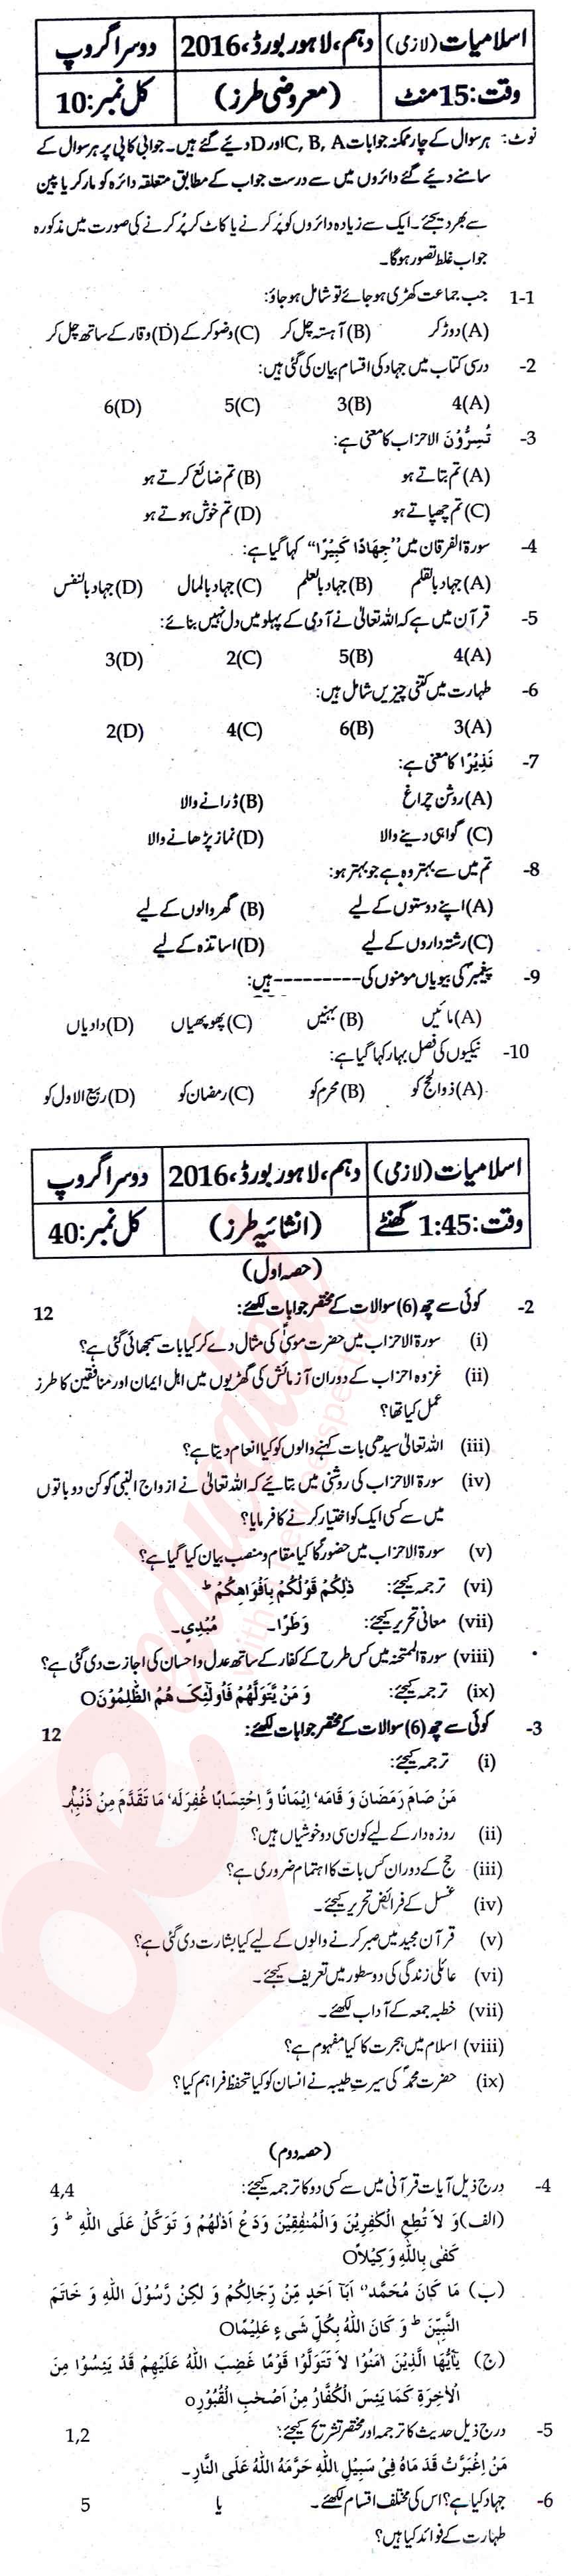 اسلامیات (لازمی) دہم، لاہور بورڈ، 2016 دوسرا گروپ
وقت: 15 منٹ (معروضی طرز) کل نمبر: 10
نوٹ: ہر سوال کے چار ممکنہ جوابات A, B, C اور D دیئے گئے ہیں۔ جوابی کاپی پر ہر سوال کے
سامنے دیئے گئے دائروں میں سے درست جواب کے مطابق متعلقہ دائرہ کو مارکر یا پین
سے بھر دیجئے۔ ایک سے زیادہ دائروں کو پُر کرنے یا کاٹ کر پُر کرنے کی صورت میں مذکورہ
جواب غلط تصور ہوگا۔
1-1 جب جماعت کھڑی ہوجائے تو شامل ہوجاؤ:
(A) دوڑ کر (B) آہستہ چل کر (C) وضو کرکے (D) وقار کے ساتھ چل کر
2- درسی کتاب میں جہاد کی اقسام بیان کی گئی ہیں:
4(A) 3(B) 5(C) 6(D)
3- تُسِرُّوْنَ الاحزاب کا معنی ہے:
(A) تم بتاتے ہو (B) تم ضائع کرتے ہو
(C) تم چھپاتے ہو (D) تم خوش ہوتے ہو
4- سورۃ الفرقان میں ”جِهَادًا كَبِيْرًا“ کہا گیا ہے:
(A) جہاد بالقلم (B) جہاد بالعلم (C) جہاد بالمال (D) جہاد بالنفس
5- قرآن میں ہے کہ اللہ تعالیٰ نے آدمی کے پہلو میں دل نہیں بنائے:
4(A) 5(B) 2(C) 3(D)
6- طہارت میں کتنی چیزیں شامل ہیں:
3(A) 6(B) 4(C) 2(D)
7- نَذِيْرًا کا معنی ہے:
(A) روشن چراغ (B) ڈرانے والا
(C) گواہی دینے والا (D) نماز پڑھانے والا
8- تم میں سے بہتر وہ ہے جو بہتر ہو:
(A) اپنے دوستوں کے لیے (B) گھر والوں کے لیے
(C) رشتہ داروں کے لیے (D) اساتذہ کے لیے
9- پیغمبرؐ کی بیویاں مومنوں کی --------- ہیں:
(A) مائیں (B) بہنیں (C) پھوپھیاں (D) دادیاں
10- نیکیوں کی فصل بہار کہا گیا ہے:
(A) ذوالحج کو (B) محرم کو (C) رمضان کو (D) ربیع الاول کو
اسلامیات (لازمی) دہم، لاہور بورڈ، 2016 دوسرا گروپ
وقت: 1:45 گھنٹے (انشائیہ طرز) کل نمبر: 40
(حصہ اول)
2- کوئی سے چھ (6) سوالات کے مختصر جوابات لکھئے: 12
(i) سورۃ الاحزاب میں حضرت موسیٰؑ کی مثال دے کر کیا بات سمجھائی گئی ہے؟
(ii) غزوہ احزاب کے دوران آزمائش کی گھڑیوں میں اہل ایمان اور منافقین کا طرز
عمل کیا تھا؟
(iii) اللہ تعالیٰ سیدھی بات کہنے والوں کو کیا انعام دیتا ہے؟
(iv) سورۃ الاحزاب کی روشنی میں بتائیے کہ اللہ تعالیٰ نے ازواج النبیؐ کو کن دو باتوں
میں سے کسی ایک کو اختیار کرنے کا فرمایا؟
(v) سورۃ الاحزاب میں حضورؐ کا کیا مقام و منصب بیان کیا گیا ہے؟
(vi) ترجمہ کیجئے: ذٰلِكُمْ قَوْلُكُمْ بِاَفْوَاهِكُمْ ط
(vii) معانی تحریر کیجئے: وَطَرًا۔ مُبْدِيٍ۔
(viii) سورۃ الممتحنہ میں کس طرح کے کفار کے ساتھ عدل و احسان کی اجازت دی گئی ہے؟
(ix) ترجمہ کیجئے: وَ مَنْ يَّتَوَلَّهُمْ فَاُولٰٓئِكَ هُمُ الظّٰلِمُوْنَO
3- کوئی سے چھ (6) سوالات کے مختصر جوابات لکھئے: 12
(i) ترجمہ کیجئے:
مَنْ صَامَ رَمَضَانَ وَ قَامَهٗ اِيْمَانًا وَّ اِحْتِسَابًا غُفِرَلَهٗ مَا تَقَدَّمَ مِنْ ذَنْبِهٖ
(ii) روزہ دار کے لیے کون سی دو خوشیاں ہیں؟
(iii) حج کے دوران کس بات کا اہتمام ضروری ہے؟
(iv) غسل کے فرائض تحریر کیجئے۔
(v) قرآن مجید میں صبر کرنے والوں کے لیے کیا بشارت دی گئی ہے؟
(vi) عائلی زندگی کی دو سطور میں تعریف کیجئے۔
(vii) خطبہ جمعہ کے آداب لکھئے۔
(viii) اسلام میں ہجرت کا کیا مفہوم ہے؟
(ix) حضرت محمدؐ کی سیرتِ طیبہ نے انسان کو کیا تحفظ فراہم کیا؟
(حصہ دوم)
4- درج ذیل آیات قرآنی میں سے کسی دو کا ترجمہ کیجئے: 4,4
(الف) وَ لاَ تُطِعِ الْكٰفِرِيْنَ وَالْمُنٰفِقِيْنَ وَدَعْ اَذٰهُمْ وَ تَوَكَّلْ عَلَى اللهِ ط وَ
كَفٰى بِاللهِ وَكِيْلاًO
(ب) مَا كَانَ مُحَمَّدٌ اَبَآ اَحَدٍ مِّنْ رِّجَالِكُمْ وَ لٰكِنْ رَّسُوْلَ اللهِ وَ خَاتَمَ
النَّبِيّٖنَ ط وَ كَانَ اللهُ بِكُلِّ شَيْءٍ عَلِيْمًاO
(ج) يٰٓاَيُّهَا الَّذِيْنَ اٰمَنُوْا لاَ تَتَوَلَّوْا قَوْمًا غَضِبَ اللهُ عَلَيْهِمْ قَدْ يَئِسُوْا مِنَ
الْاٰخِرَةِ كَمَا يَئِسَ الْكُفَّارُ مِنْ اَصْحٰبِ الْقُبُوْرِO
5- درج ذیل حدیث کا ترجمہ اور مختصر تشریح کیجئے: 1,2
مَنِ اغْبَرَّتْ قَدَمَاهُ فِيْ سَبِيْلِ اللهِ حَرَّمَهُ اللهُ عَلَى النَّارِ۔
6- جہاد کیا ہے؟ اس کی مختلف اقسام لکھئے۔ یا 5
طہارت کے فوائد کیا ہیں؟